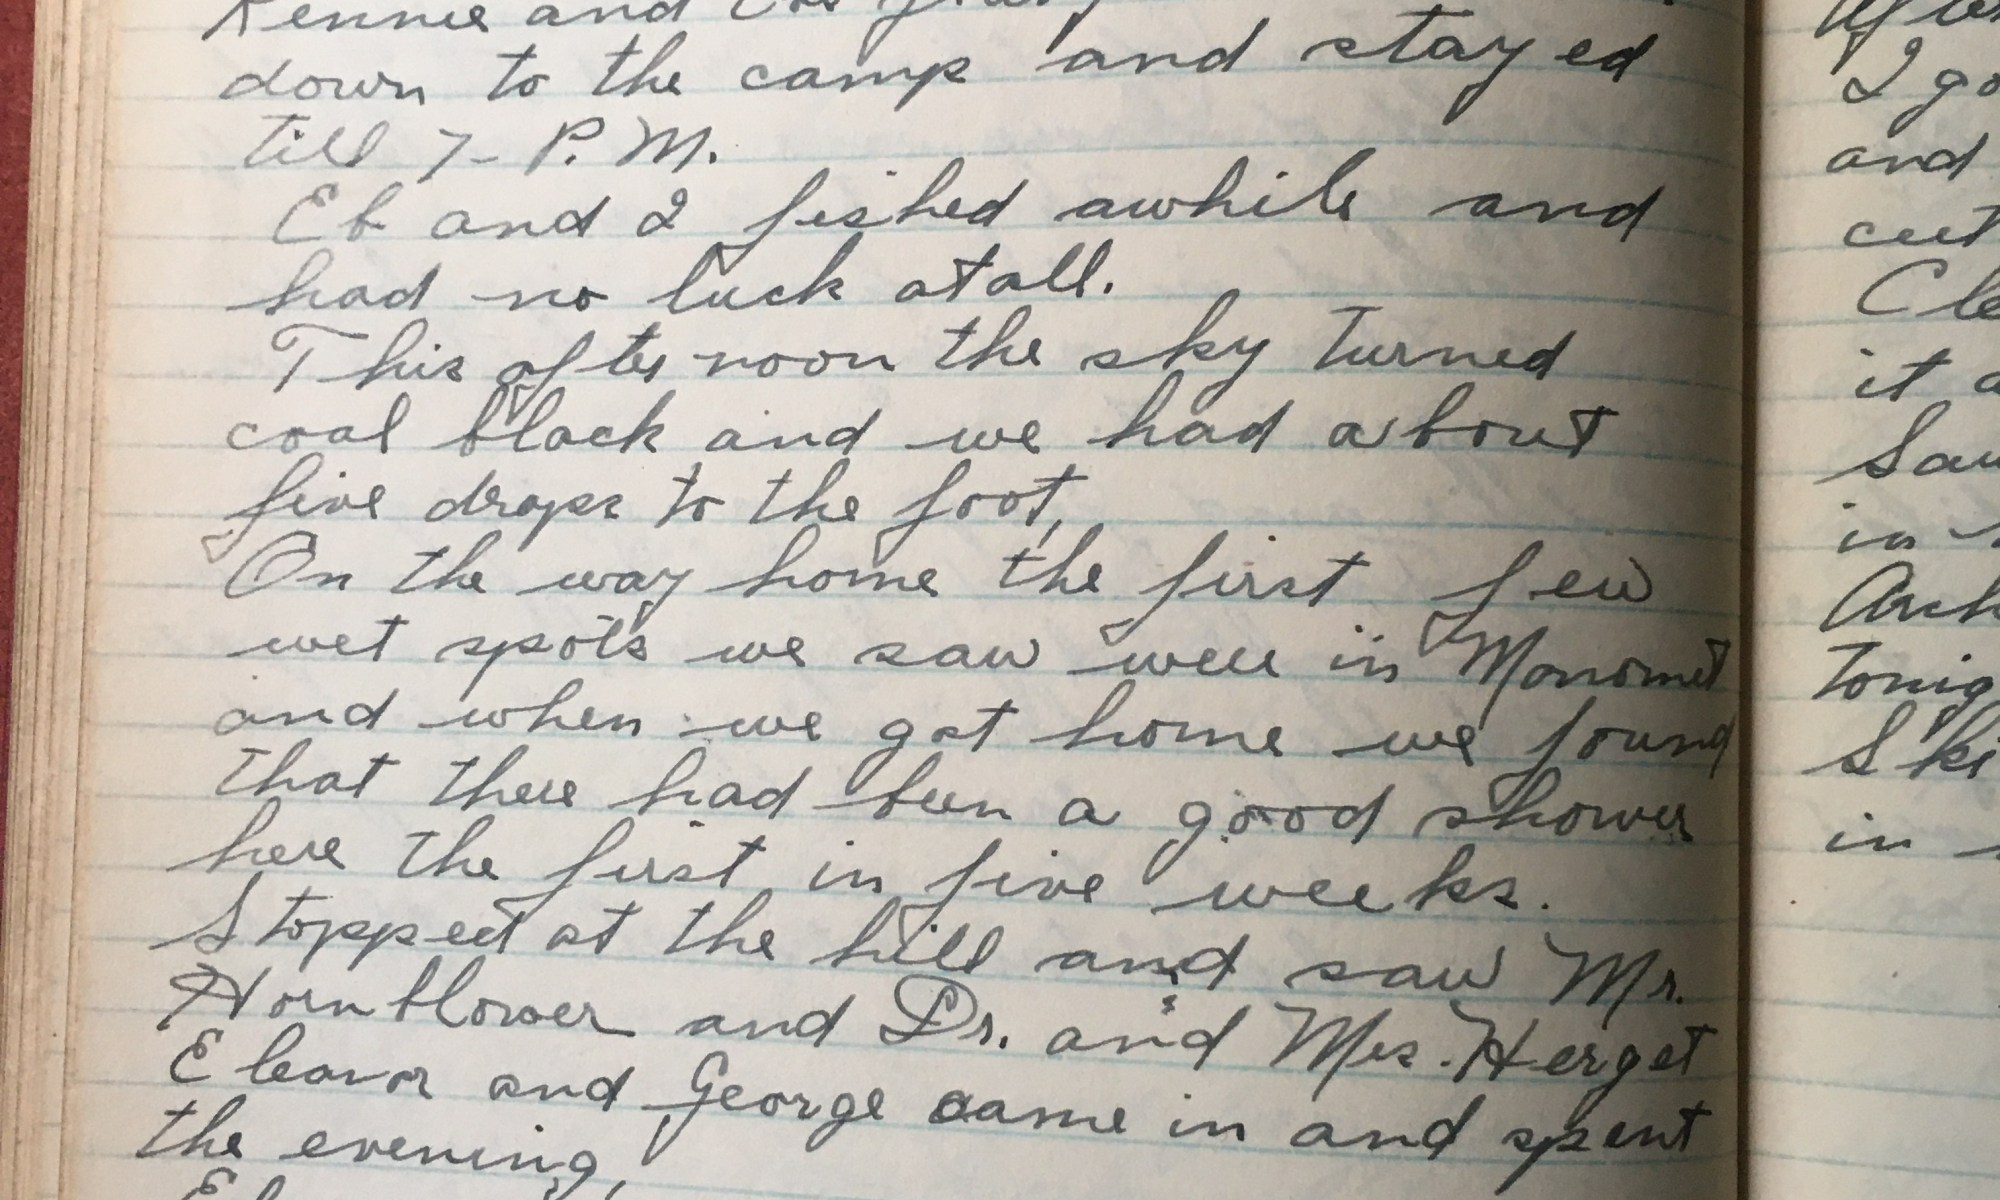 and
down to the camp and stayed
till 7- P.M.
Eb and I fished awhile and
had no luck atall.
This afternoon the sky turned
coal black and we had about
five drops to the foot,
On the way home the first few
wet spots we saw were in Manomet
and when we got home we found
that there had been a good shower
here the first in five weeks.
Stopped at the hill and saw Mr.
Hornblower and Dr. and Mrs. Herget
Eleanor and George came in and spent
the evening,
I go
and
cut
it a
in
in